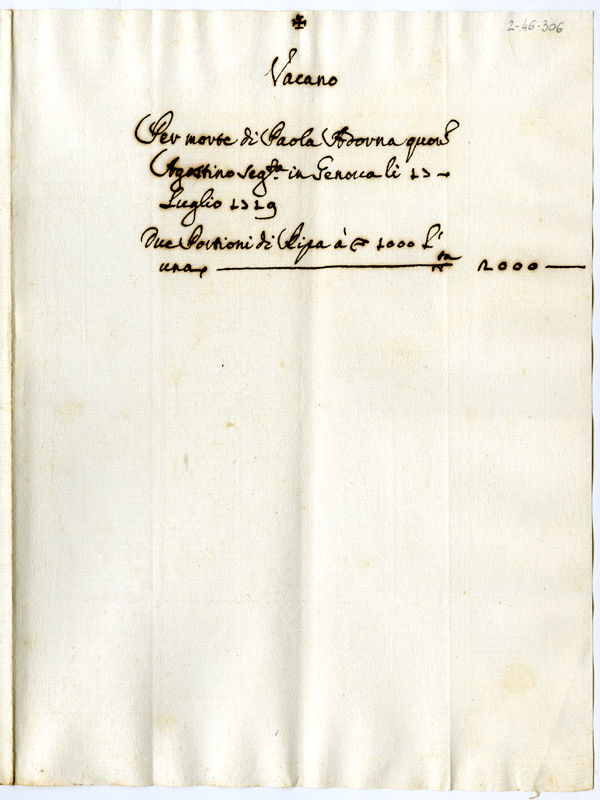 ✠
2-46-306
Vacano
Per morte di Paola Adorna quon
Agostino seg.ta in Genova li 13
Luglio 1719
Due Portioni di Ripa à 1000 L'
una 2000